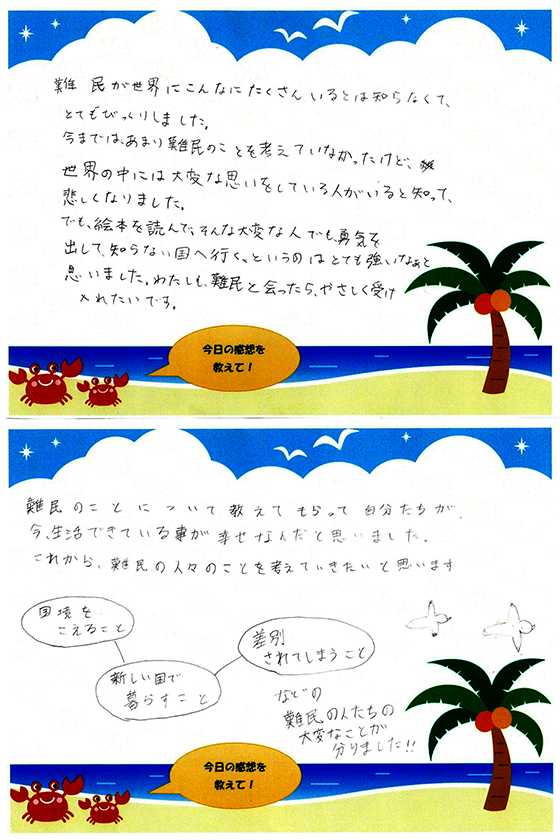 難民が世界にこんなにたくさんいるとは知らなくて、
とてもびっくりしました。
今までは、あまり難民のことを考えていなかったけど、
世界の中には大変な思いをしている人がいると知って、
悲しくなりました。
でも、絵本を読んで、そんな大変な人でも、勇気を
出して、知らない国へ行く、というのはとても強いなぁと
思いました。わたしも、難民と会ったら、やさしく受け
入れたいです。
今日の感想を
教えて！
難民のことについて教えてもらって自分たちが、
今、生活できている事が幸せなんだと思いました。
これから、難民の人々のことを考えていきたいと思います
国境を
こえること
新しい国で
暮らすこと
差別
されてしまうこと
などの
難民の人たちの
大変なことが
分りました!!
今日の感想を
教えて！